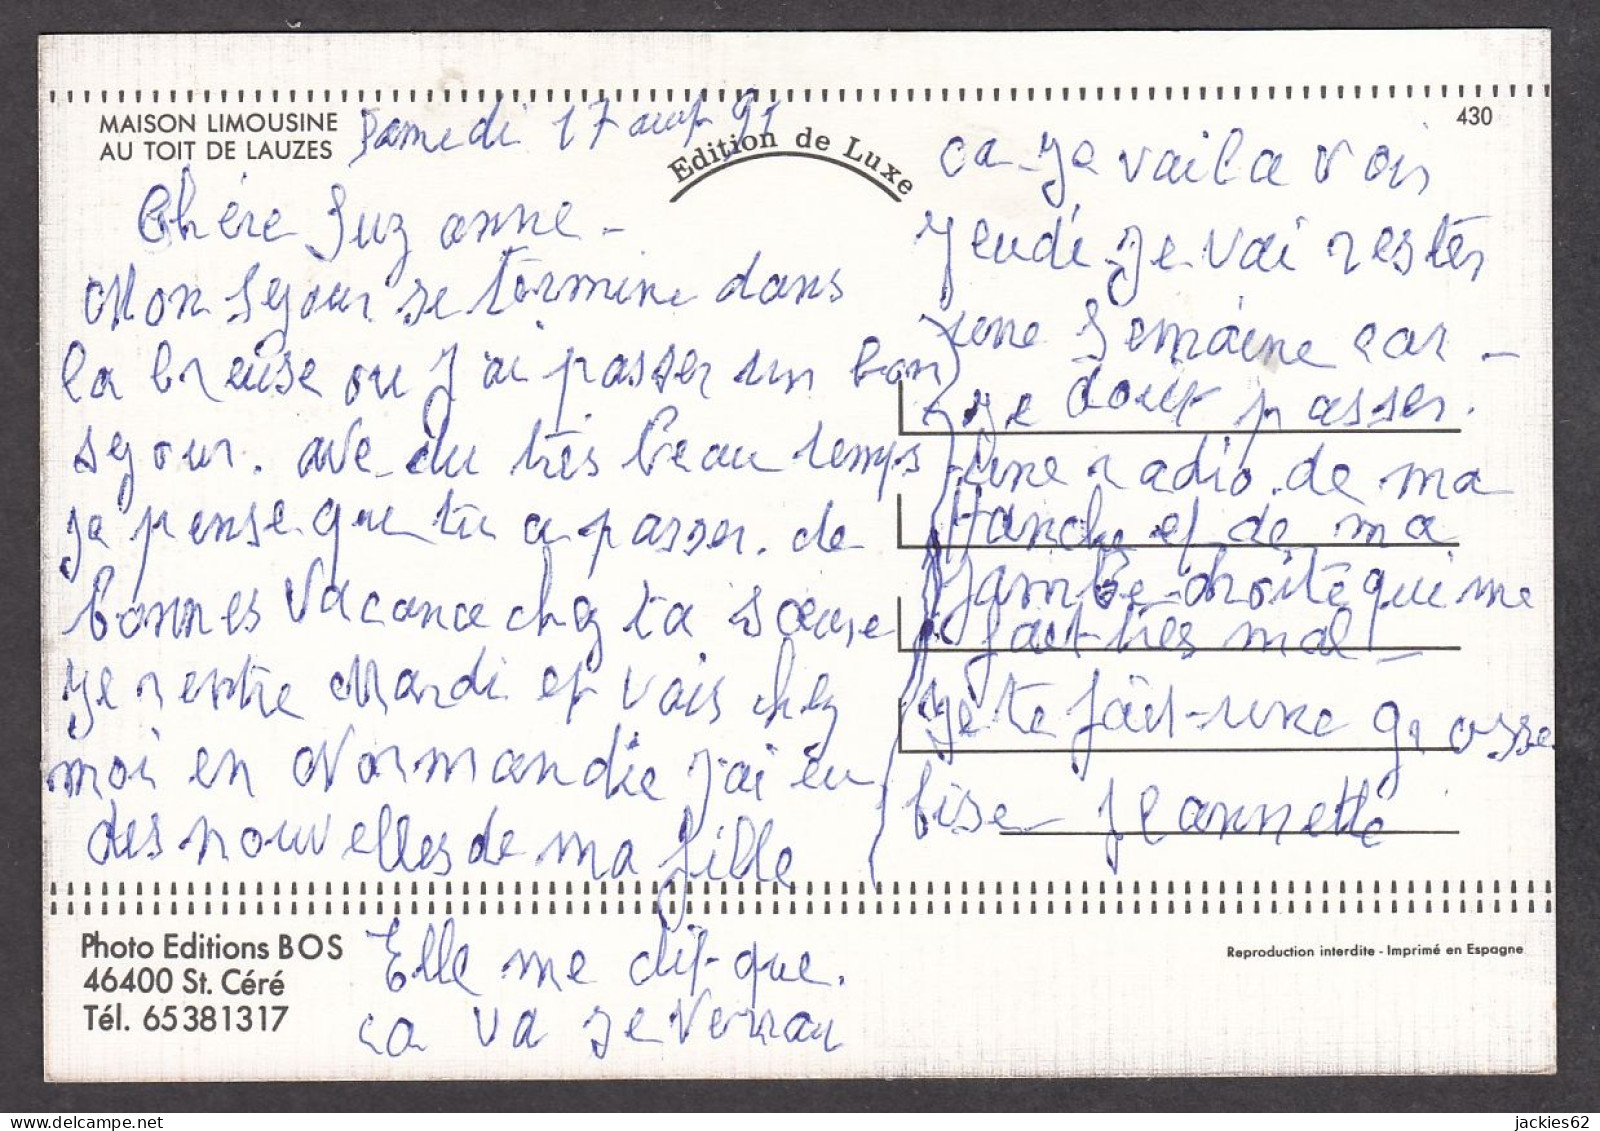 MAISON LIMOUSINE
AU TOIT DE LAUZES
Samedi 17 aout 91
Edition de Luxe
430
Chère Suzanne -
Mon sejour se termine dans
la breuse ou j'ai passer un bon
sejour. ave du très beau temps
je pense que tu a passer. de
bonnes vacance chez ta soeure
je rentre Mardi et vais chez
moi en Normandie j'ai eu
des nouvelles de ma fille
Elle me dit que.
ca va je verrau
ca - je vai la voir
jeudi je vai rester
une semaine car -
je doux passer.
une radio. de ma
Hanche et de ma
jambe droite qui me
fait très mal -
je te fait une grosse
bise Jeannette
Photo Editions BOS
46400 St. Céré
Tél. 65381317
Reproduction interdite - Imprimé en Espagne
jackies62